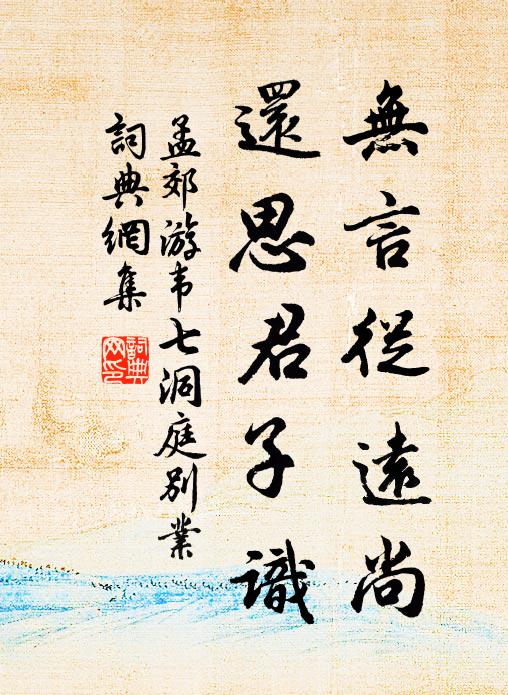 無言從遠尚
還思君子識
孟郊游韦七洞庭别業
詞典網集
詞典网印